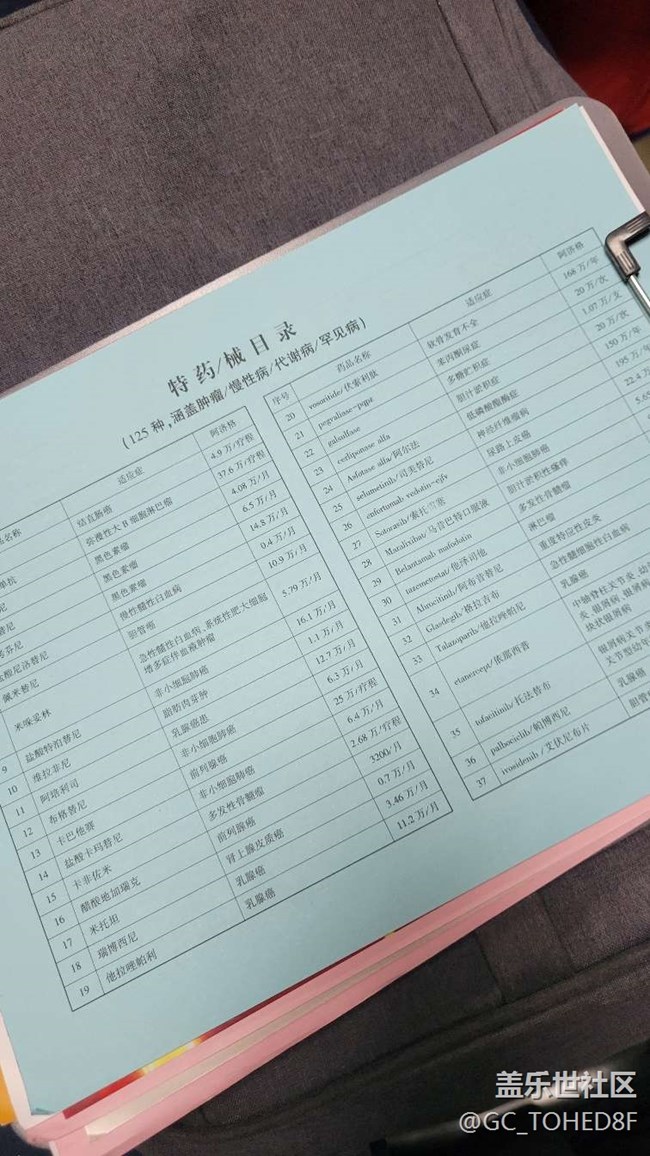 特药/械目录
(125种,涵盖肿瘤/慢性病/代谢病/罕见病)
品名称 适应症 阿济格
结直肠癌 4.9万/疗程
单抗 弥漫性大B细胞淋巴瘤 37.6万/疗程
尼 黑色素瘤 4.08万/月
替尼 黑色素瘤 6.5万/月
芬尼 黑色素瘤 14.8万/月
尼洛替尼 慢性髓性白血病 0.4万/月
佩米替尼 胆管癌 10.9万/月
米哚妥林 急性髓性白血病、系统性肥大细胞增多症伴血液肿瘤 5.79万/月
9 盐酸特泊替尼 非小细胞肺癌 16.1万/月
10 维拉非尼 脂肪肉芽肿 1.1万/月
11 阿培利司 乳腺癌患 12.7万/月
12 布格替尼 非小细胞肺癌 6.3万/月
13 卡巴他赛 前列腺癌 25万/疗程
14 盐酸卡玛替尼 非小细胞肺癌 6.4万/月
15 卡非佐米 多发性骨髓瘤 2.68万/疗程
16 醋酸地加瑞克 前列腺癌 3200/月
17 米托坦 肾上腺皮质癌 0.7万/月
18 瑞博西尼 乳腺癌 3.46万/月
19 他拉唑帕利 乳腺癌 11.2万/月
序号 药品名称 适应症 阿济格
20 vosoritide/伏索利肽 软骨发育不全 168万/年
21 pegvaliase-pqpz 苯丙酮尿症 20万/次
22 galsulfase 多糖贮积症 1.07万/支
23 cerliponase alfa 胆汁淤积症 20万/次
24 Asfotase alfa/阿尔法 低磷酸酯酶症 150万/年
25 selumetinib/司美替尼 神经纤维瘤病 195万/年
26 enfortumab vedotin-ejfv 尿路上皮癌 22.4万
27 Sotorasib/索托雷塞 非小细胞肺癌 5.65
28 Maralixibat/马昔巴特口服液 胆汁淤积性瘙痒
29 Belantamab mafodotin 多发性骨髓瘤
30 tazemetostat/他泽司他 淋巴瘤
31 Abrocitinib/阿布昔替尼 重度特应性皮炎
32 Glasdegib/格拉吉布 急性髓细胞性白血病
33 Talazoparib/他拉唑帕尼 乳腺癌
34 etanercept/依那西普 中轴脊柱关节炎、幼 炎、银屑病、银屑病 块状银屑病
35 tofacitinib/托法替布 银屑病关节炎 关节型幼年
36 palbociclib/帕博西尼 乳腺癌
37 ivosidenib/艾伏尼布片 胆管
盖乐世社区
@GC_TOHED8F